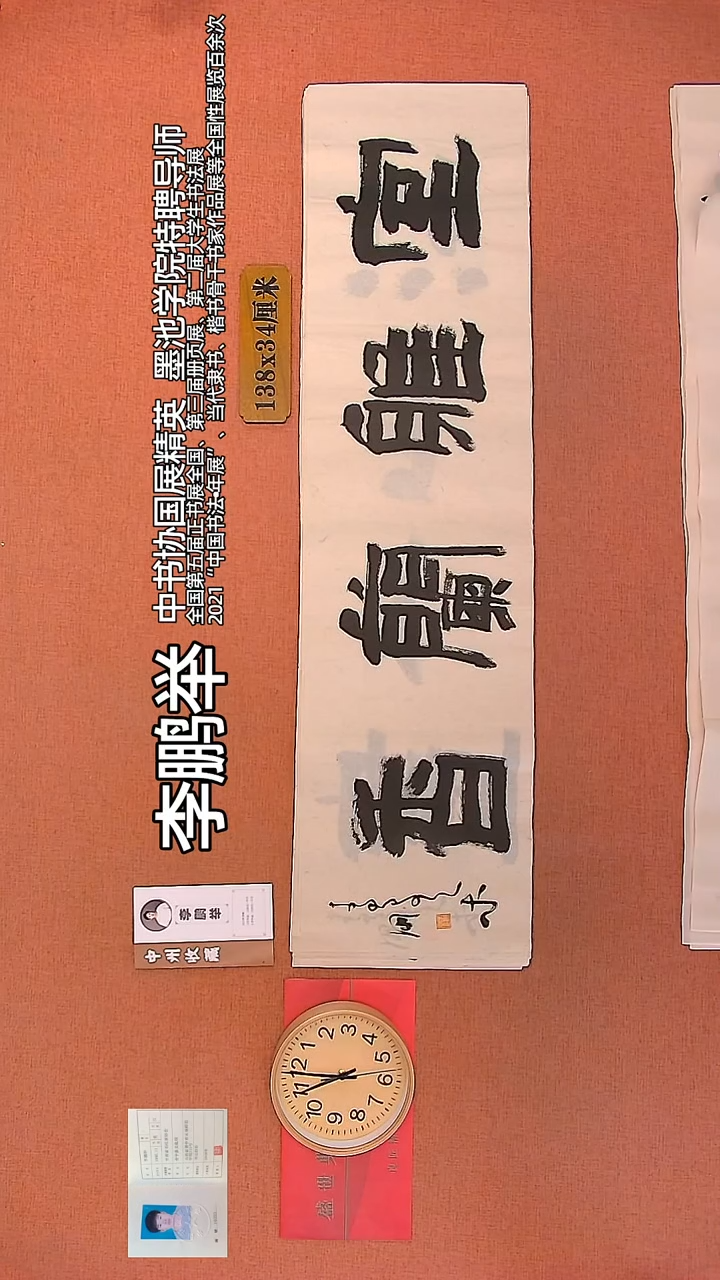 李鹏举
中书协国展精英 墨池学院特聘导师
全国第五届正书展全国、第三届册页展、第二届大学生书法展
2021“中国书法•年展”、当代隶书、楷书骨干书家作品展等全国性展览百余次
138x34厘米
室雅蘭香
李鹏举
中州收藏
12 1 2 3 4 5 6 7 8 9 10 11